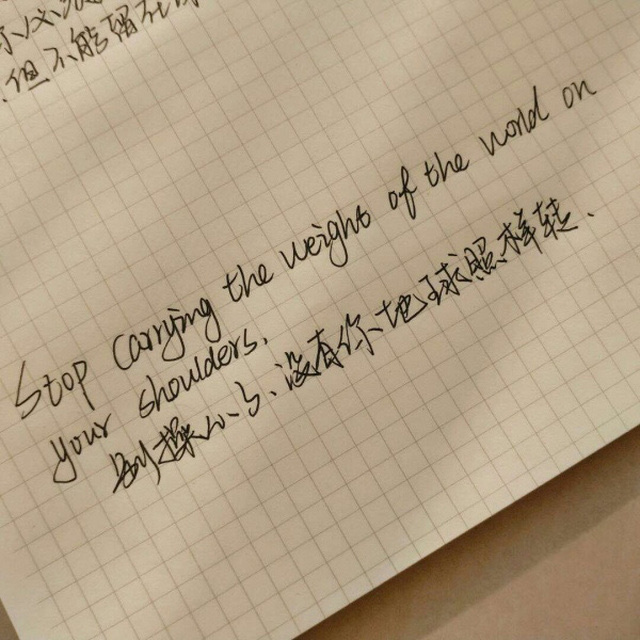 但不能
Stop carrying the weight of the world on
your shoulders.
别操心了、没有你地球照样转、